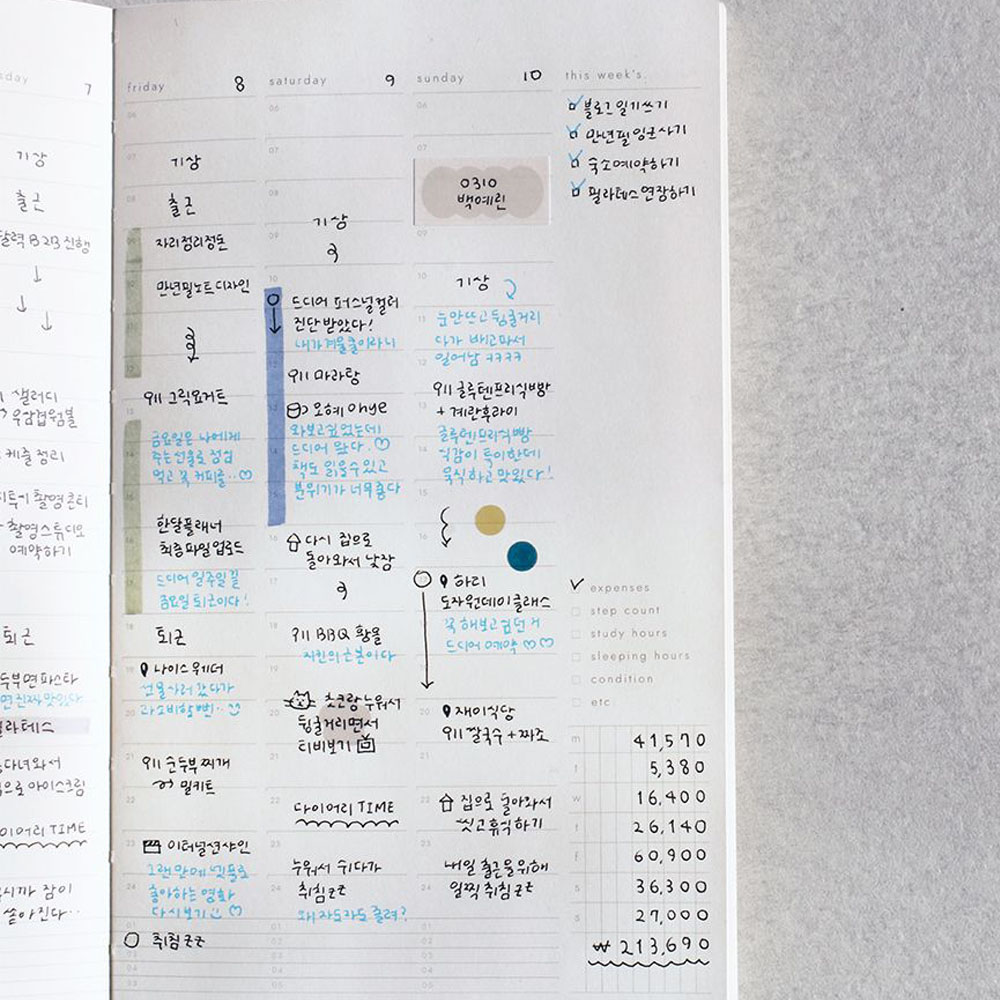 day
7
기상
출근
달력 B2B 진행
샐러디
우삼겹웜볼
케출 정리
촬영콘티
촬영스튜디오
예약하기
퇴근
두부면파스타
면진짜맛있다
라테스
다녀와서
으로 아이스크림
이어리 TIME
시까 잠이
쏟아진다..
friday 8
06
07
기상
08
출근
09
자리정리정돈
10
만년필노트디자인
12
위 그릭요거트
13
금요일은 나에게
14
주는선물로 점심
먹고 꼭 커피를..♡
한달플래너
16
최종파일업로드
17
드디어 일주일 끝
금요일 퇴근이다!
18
퇴근
19
나이스웨더
선물사러 갔다가
20
과소비할뻔..
21
위 순두부찌개
밀키트
22
23
이터널선샤인
그랜만에 넷플로
24
좋아하는 영화
다시보기 ♡
01
취침 zz
03
04
05
saturday 9
06
07
08
기상
09
10
드디어 퍼스널컬러
진단받았다!
내가겨울쿨이라니
위 마라탕
오혜 ohye
와보고싶었는데
드디어 왔다.♡
책도 읽을수있고
분위기가 너무좋다
16
다시 집으로
돌아와서 낮잠
17
18
위 BBQ 황올
치킨의근본이다
19
초코랑누워서
20
뒹굴거리면서
티비보기
21
22
다이어리 TIME
23
누워서 쉬다가
24
취침zz
왜 자도자도 졸려?
01
02
03
04
05
sunday 10
06
07
0310
백예린
09
10
기상
11
눈안뜨고 뒹굴거리
다가 배고파서
12
일어남 ㅋㅋㅋㅋ
위 글루텐프리식빵
13
+ 계란후라이
글루텐프리식빵
14
식감이 특이한데
묵직하고 맛있다!
15
16
17
하리
도자원데이클래스
18
꼭 해보고싶던거
드디어 예약 ♡♡
19
20
재이식당
위 쌀국수 + 짜조
21
22
집으로 돌아와서
씻고휴식하기
23
내일 출근을위해
24
일찍 취침 zz
01
02
03
04
05
this week's.
블로그 일기쓰기
만년필 잉크사기
숙소예약하기
필라테스 연장하기
expenses
step count
study hours
sleeping hours
condition
etc.
m 41,570
t 5,380
w 16,400
t 26,140
f 60,900
s 36,300
s 27,000
₩ 213,690